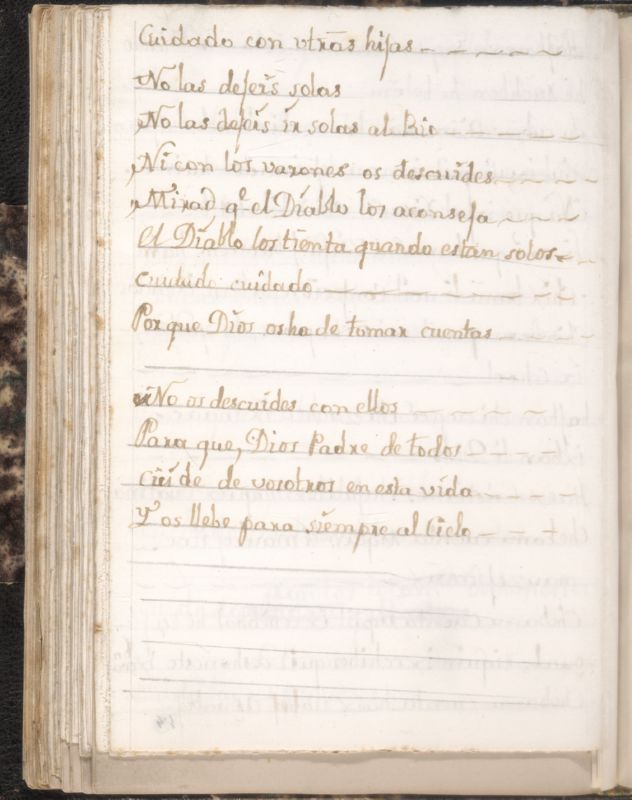 Cuidado con vtrãs hijas - - - - - -
No las dejeis solas
No las dejeis ir solas al Rio
Ni con los varones os descuides - - - -
Mirad q.e el Diablo los aconseja - - - -
El Diablo los tienta quando estan solos -
Cuidado cuidado - - - - - -
Por que Dios os ha de tomar cuentas - - - -
No os descuides con ellos - - - - -
Para que, Dios Padre de todos - + - -
Cuide de vosotros en esta vida - - -
Y os llebe para siempre al Cielo - - - +